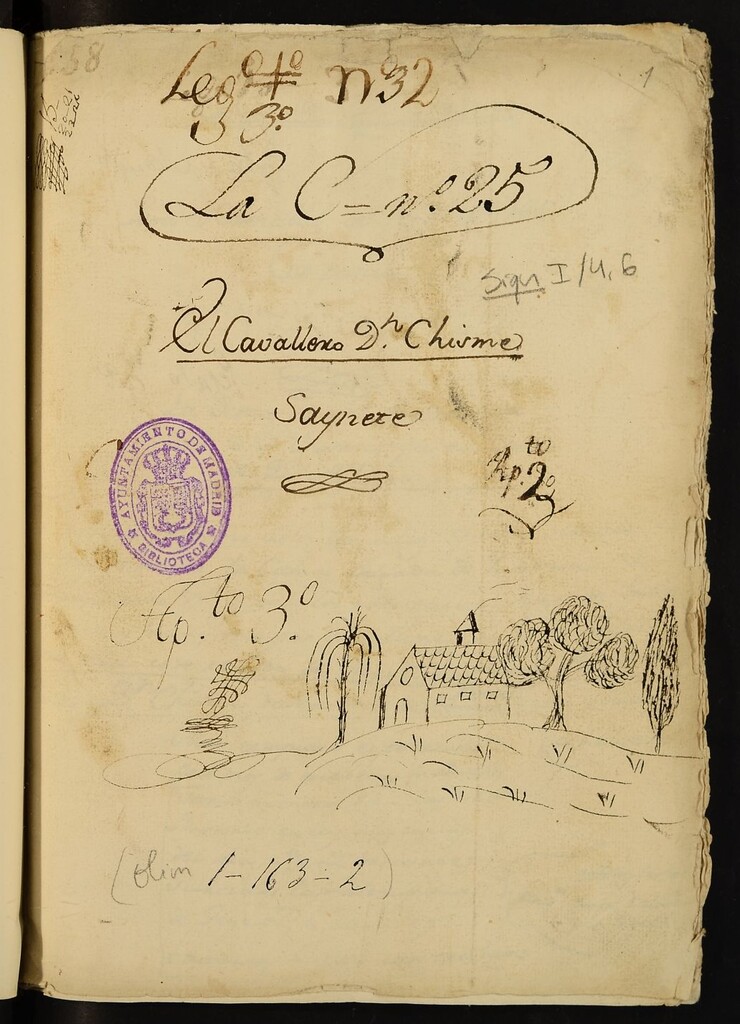 1
Leg.to nº 32
3º
La C = nº 25
Sign I/4, 6
El Cavallero Dn. Chisme
Saynete
Ap.to 2º
AYUNTAMIENTO DE MADRID
BIBLIOTECA
Ap.to 3º
(olim 1-163-2)